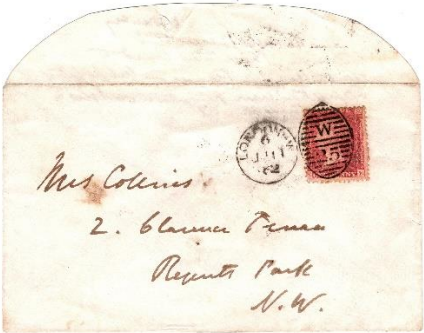 LONDON W
6
JU 11
62
W
15
Mrs Collins
2. Clarence Terrace
Regents Park
N.W.